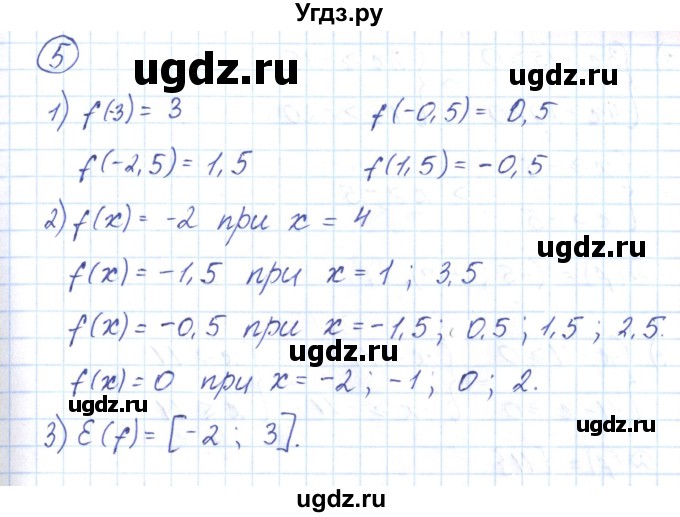 Угдз.ру
5
ugdz.ru
1) f(-3) = 3 f(-0,5) = 0,5
f(-2,5) = 1,5 f(1,5) = -0,5
2) f(x) = -2 при x = 4
ugdz.ru
f(x) = -1,5 при x = 1 ; 3,5
f(x) = -0,5 при x = -1,5 ; 0,5 ; 1,5 ; 2,5.
ugdz.ru
f(x) = 0 при x = -2 ; -1 ; 0 ; 2.
ugdz.ru ugdz.ru
3) E(f) = [-2 ; 3].
ugdz.ru